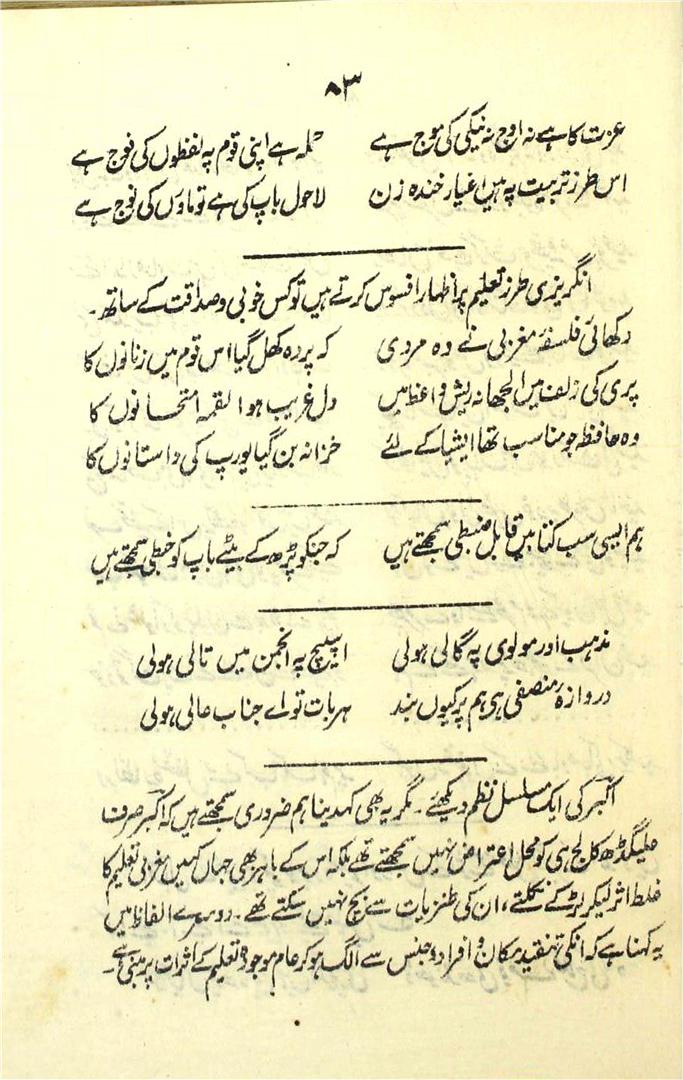 ۸۳
عزت کا ہے نہ اوج نہ نیکی کی موج ہے حملہ ہے اپنی قوم پہ لفظوں کی فوج ہے
اس طرز تربیت پہ ہیں اغیار خندہ زن لاحول باپ کی ہے تو ماؤں کی نوج ہے
انگریزی طرز تعلیم پر اظہار افسوس کرتے ہیں تو کس خوبی و صداقت کے ساتھ۔
دکھائی فلسفۂ مغربی نے وہ مردی کہ پردہ کھل گیا اس قوم میں زنانوں کا
پری کی زلف میں الجھا نہ ریش واعظ میں دل غریب ہوا لقمہ امتحانوں کا
وہ حافظہ جو مناسب تھا ایشیا کے لئے خزانہ بن گیا یورپ کی داستانوں کا
ہم ایسی سب کتابیں قابل ضبطی سمجھتے ہیں کہ جنکو پڑھ کے بیٹے باپ کو خبطی سمجھتے ہیں
مذہب اور مولوی پہ گالی ہولی اسپیچ پہ انجمن میں تالی ہولی
دروازہ منصفی ہی ہم پر کیوں بند ہر بات تو اے جناب عالی ہولی
اکبر کی ایک مسلسل نظم دیکھئے۔ مگر یہ بھی کہدینا ہم ضروری سمجھتے ہیں کہ اکبر صرف
علیگڈھ کالج ہی کو محل اعتراض نہیں سمجھتے تھے بلکہ اس کے باہر بھی جہاں کہیں مغربی تعلیم کا
غلط اثر لیکر لڑکے نکلتے، ان کی طنزیات سے بچ نہیں سکتے تھے۔ دوسرے الفاظ میں
یہ کہنا ہے کہ انکی تنقید مکان و افراد و جنس سے الگ ہو کر عام موجودہ تعلیم کے اثرات پر مبنی ہے۔